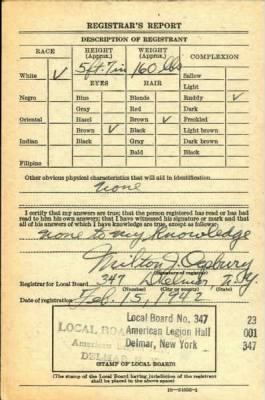 REGISTRAR'S REPORT
DESCRIPTION OF REGISTRANT
RACE HEIGHT (Approx.) WEIGHT (Approx.) COMPLEXION
White ✓ 5 ft. 7 in 160 lbs Sallow
EYES HAIR Light
Negro Blue Blonde Ruddy ✓
Gray Red Dark
Oriental Hazel Brown ✓ Freckled
Brown ✓ Black Light brown
Indian Black Gray Dark brown
Bald Black
Filipino
Other obvious physical characteristics that will aid in identification
None
I certify that my answers are true; that the person registered has read or has had
read to him his own answers; that I have witnessed his signature or mark and that
all of his answers of which I have knowledge are true, except as follows:
None to my knowledge
Milton J.
(Signature of registrar)
Registrar for Local Board 347 Delmar N.Y.
(Number) (City or county) (State)
Date of registration Feb. 15, 1942
LOCAL BOARD
American
DELMAR, N. Y.
Local Board No. 347 23
American Legion Hall 001
Delmar, New York 347
(STAMP OF LOCAL BOARD)
(The stamp of the Local Board having jurisdiction of the registrant
shall be placed in the above space)